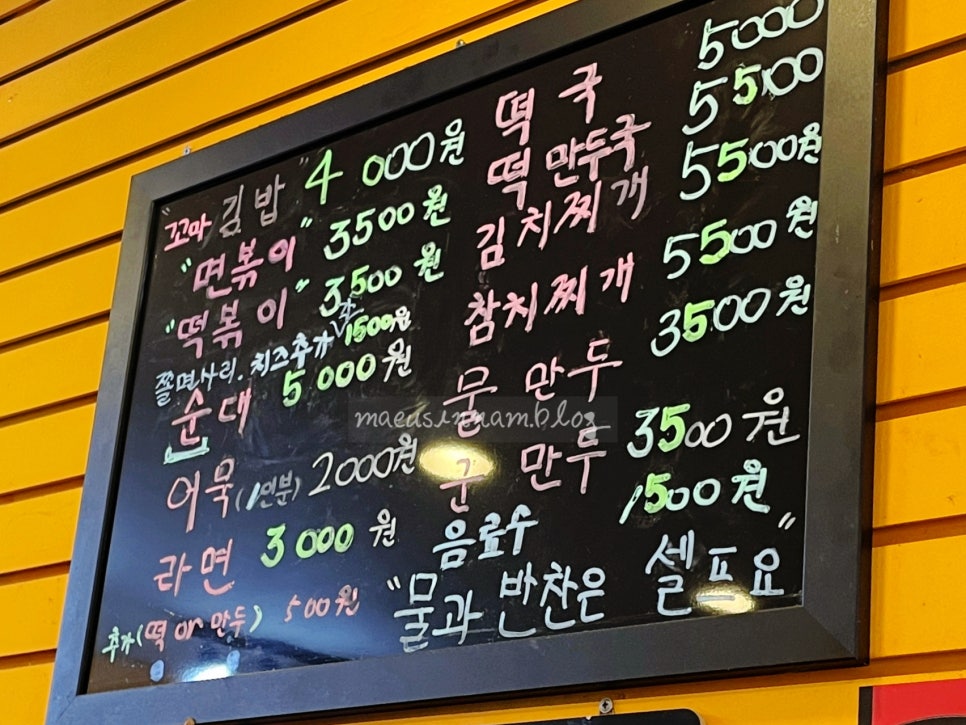 "꼬마 김밥 4000원
"면볶이" 3500원
"떡볶이" 3500원
쫄면사리. 치즈추가 각 1500원
순대 5000원
어묵(1인분) 2000원
라면 3000원
추가(떡 or 만두) 500원
떡국 5000
떡만두국 5500
김치찌개 5500원
참치찌개 5500원
물만두 3500원
군만두 3500원
음료수 1500원
"물과 반찬은 셀프요"
maeusinnam.blog